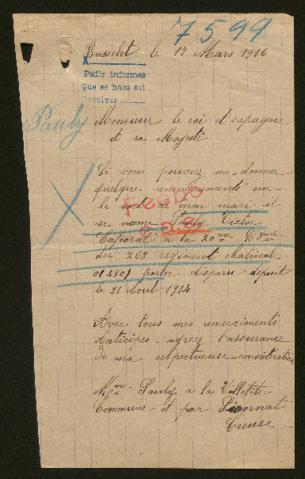 7599
Busselet le 17 Mars 1916
Pedir informes
Que se hace así
Pauly
Monsieur le roi d'espagne
et sa Majesté
Si vous pouvez me donner
quelque renseignements sur
le sort de mon mari et
se nome Pauly Victor
Caporal à la 20me
du 268 régiment Matricule
01480 porter disparu depuit
le 21 Aout 1914
Avec tous mes remerciments
Anticipés agréez l'assurance
de ma respectueuse considération
Mme Pauly a la Villette
Commune et par Pionnat
Creuse